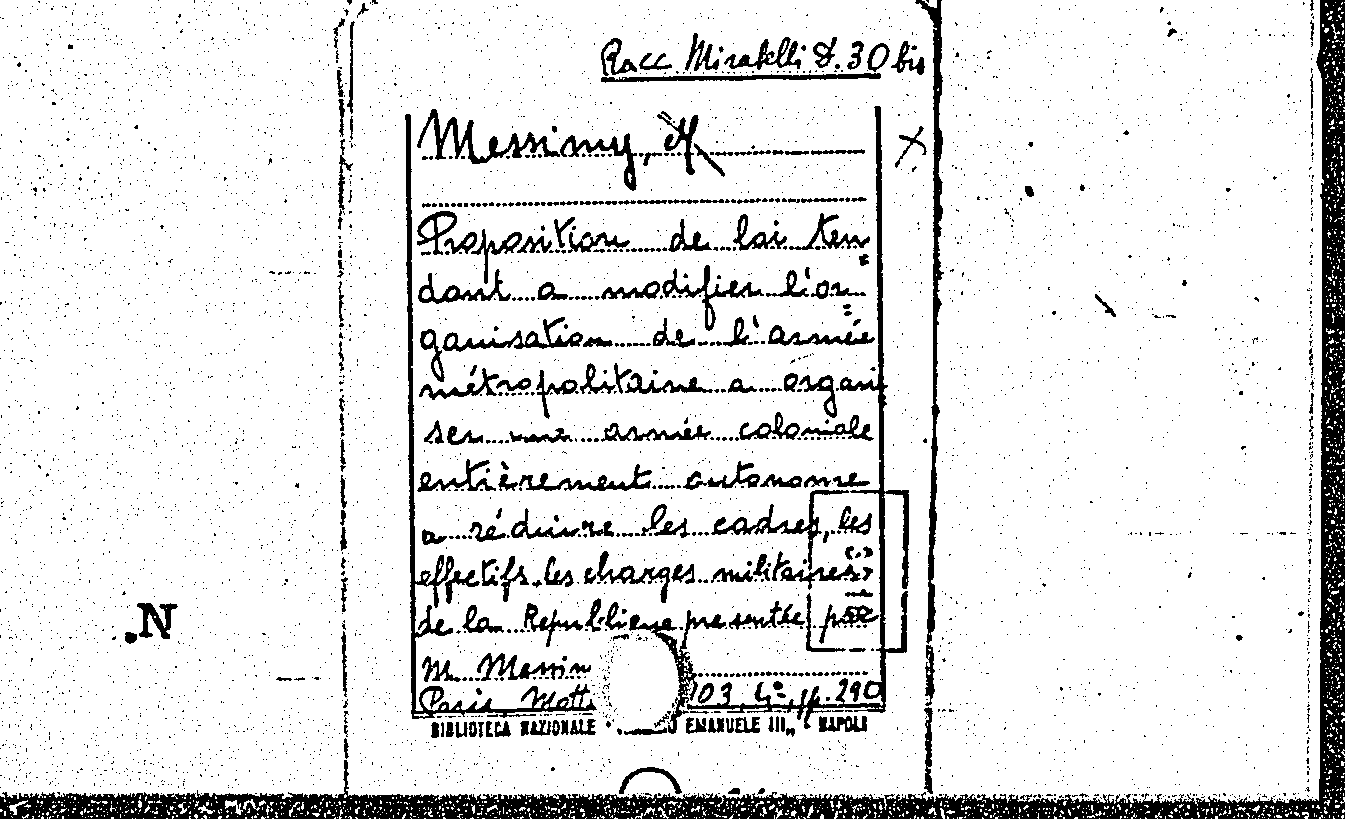 Racc Mirabelli S. 30 bis
Messimy, A
Proposition de loi ten
dant a modifier l'or
ganisation de l'armée
métropolitaine a organi
ser une armée coloniale
entièrement autonome
a réduire les cadres, les
effectifs les charges militaires
de la Republique presentée par
M. Messim
Paris Mott 103, 4°, pp. 290
BIBLIOTECA NAZIONALE EMANUELE III„ - NAPOLI
.N